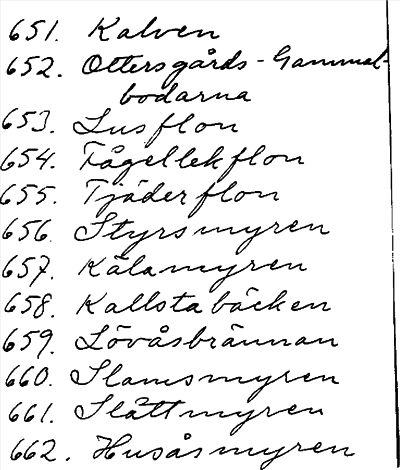 651. Kalven
652. Ottersgårds-Gammal-
bodarna
653. Lusflon
654. Fågellekflon
655. Tjäderflon
656. Styrsmyren
657. Kälamyren
658. Kallstabäcken
659. Lövåsbrännan
660. Slamsmyren
661. Slåttmyren
662. Husåsmyren